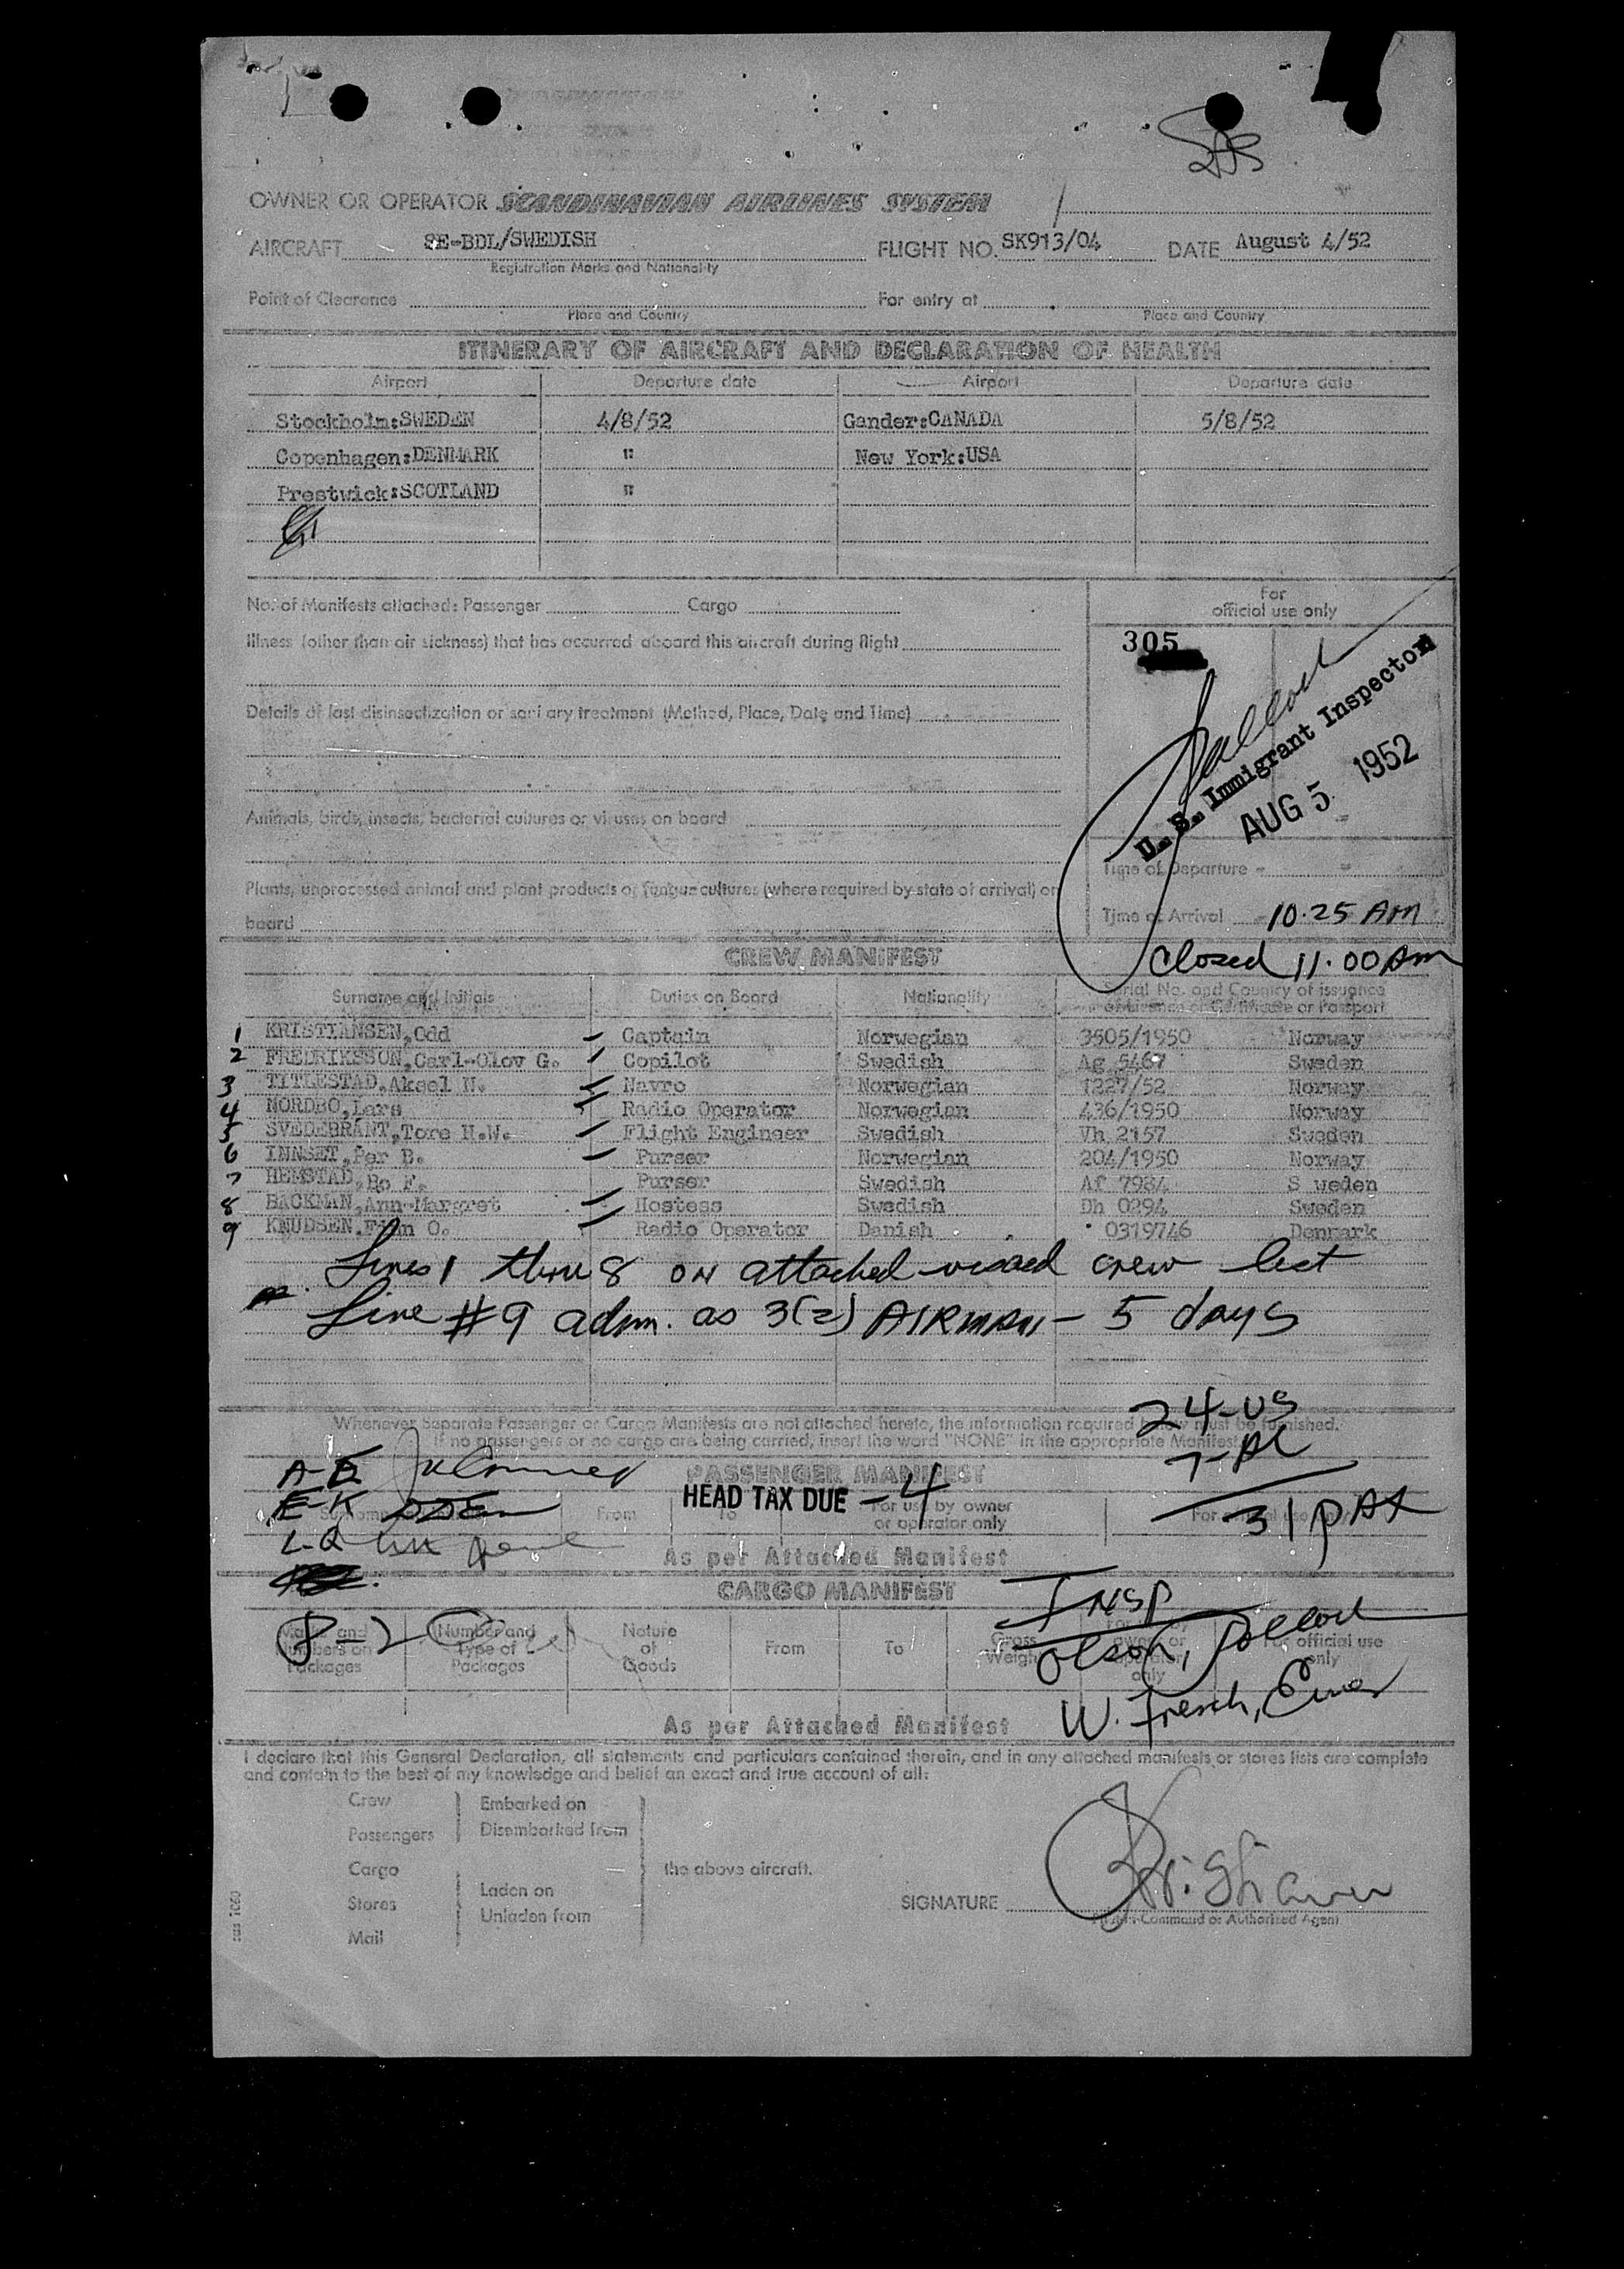 SAS
OWNER OR OPERATOR SCANDINAVIAN AIRLINES SYSTEM
AIRCRAFT SE-BDL/SWEDISH FLIGHT NO. SK913/04 DATE August 4/52
Registration Marks and Nationality
Point of Clearance For entry at
Place and Country Place and Country
ITINERARY OF AIRCRAFT AND DECLARATION OF HEALTH
Airport Departure date Airport Departure date
Stockholm:SWEDEN 4/8/52 Gander:CANADA 5/8/52
Copenhagen:DENMARK " New York:USA
Prestwick:SCOTLAND "
No. of Manifests attached: Passenger Cargo
For
official use only
Illness (other than air sickness) that has occurred aboard this aircraft during flight
305
Details of last disinsectization or sanitary treatment (Method, Place, Date and Time)
Pollock
U. S. Immigrant Inspector
AUG 5 1952
Animals, birds, insects, bacterial cultures or viruses on board
Time of Departure
Plants, unprocessed animal and plant products or fungus cultures (where required by state of arrival) on
board
Time of Arrival 10.25 AM
Closed 11.00 AM
CREW MANIFEST
Surname and Initials Duties on Board Nationality Serial No. and Country of issuance
of License or Certificate or Passport
1 KRISTIANSEN,Odd Captain Norwegian 3505/1950 Norway
2 FREDRIKSSON,Carl-Olov G. Copilot Swedish Ag 5467 Sweden
3 TITLESTAD,Aksel N. Navro Norwegian 1227/52 Norway
4 NORDBO,Lars Radio Operator Norwegian 436/1950 Norway
5 SVEDEBRANT,Tore H.W. Flight Engineer Swedish Vh 2157 Sweden
6 INNSET,Per B. Purser Norwegian 204/1950 Norway
7 HEMSTAD,Bo F. Purser Swedish Af 7984 S weden
8 BACKMAN,Ann-Margret Hostess Swedish Dh 0294 Sweden
9 KNUDSEN,Finn O. Radio Operator Danish 0319746 Denmark
Lines 1 thru 8 on attached visaed crew list
Line #9 adm. as 3(2) AIRMAN - 5 days
24-US
Whenever Separate Passenger or Cargo Manifests are not attached hereto, the information required below must be furnished.
If no passengers or no cargo are being carried, insert the word "NONE" in the appropriate Manifest
7-AL
A-E
PASSENGER MANIFEST
HEAD TAX DUE - 4
E-K
From To For use by owner
or operator only
31 PAX
L-Q
As per Attached Manifest
CARGO MANIFEST
INSP
Marks and
Numbers on
Packages
Number and
Type of
Packages
Nature
of
Goods
From To Gross
Weight
For official use
only
Olson, Pollock
W. French,
As per Attached Manifest
I declare that this General Declaration, all statements and particulars contained therein, and in any attached manifests or stores lists are complete
and contain to the best of my knowledge and belief an exact and true account of all:
Crew Embarked on
Passengers Disembarked from
Cargo the above aircraft.
Stores Laden on
Unladen from
Mail
SIGNATURE Kristiansen
Pilot-in-Command or Authorized Agent